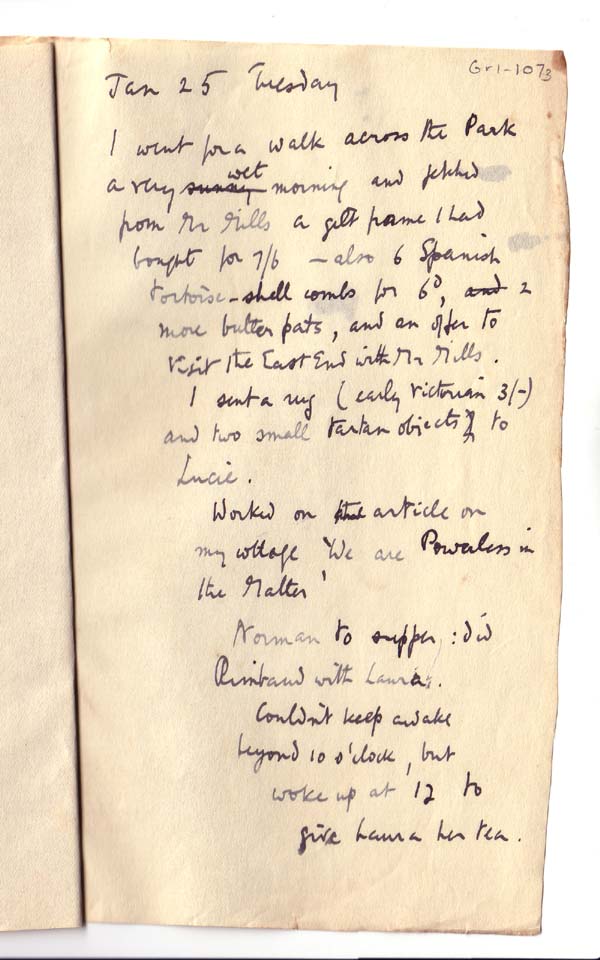 Gr1-1073
Jan 25 Tuesday
I went for a walk across the Park
a very sunny wet morning and fetched
from Mr Mills a gilt frame I had
bought for 7/6 – also 6 Spanish
tortoise-shell combs for 6ᴰ, and 2
more butter pats, and an offer to
visit the East End with Mr Mills.
I sent a rug (early Victorian 3/-)
and two small tartan objects to
Lucie.
Worked on article on
my cottage 'We are Powerless in
the Matter'
Norman to supper: did
Rimbaud with Laura.
Couldn't keep awake
beyond 10 o'clock, but
woke up at 12 to
give Laura her tea.